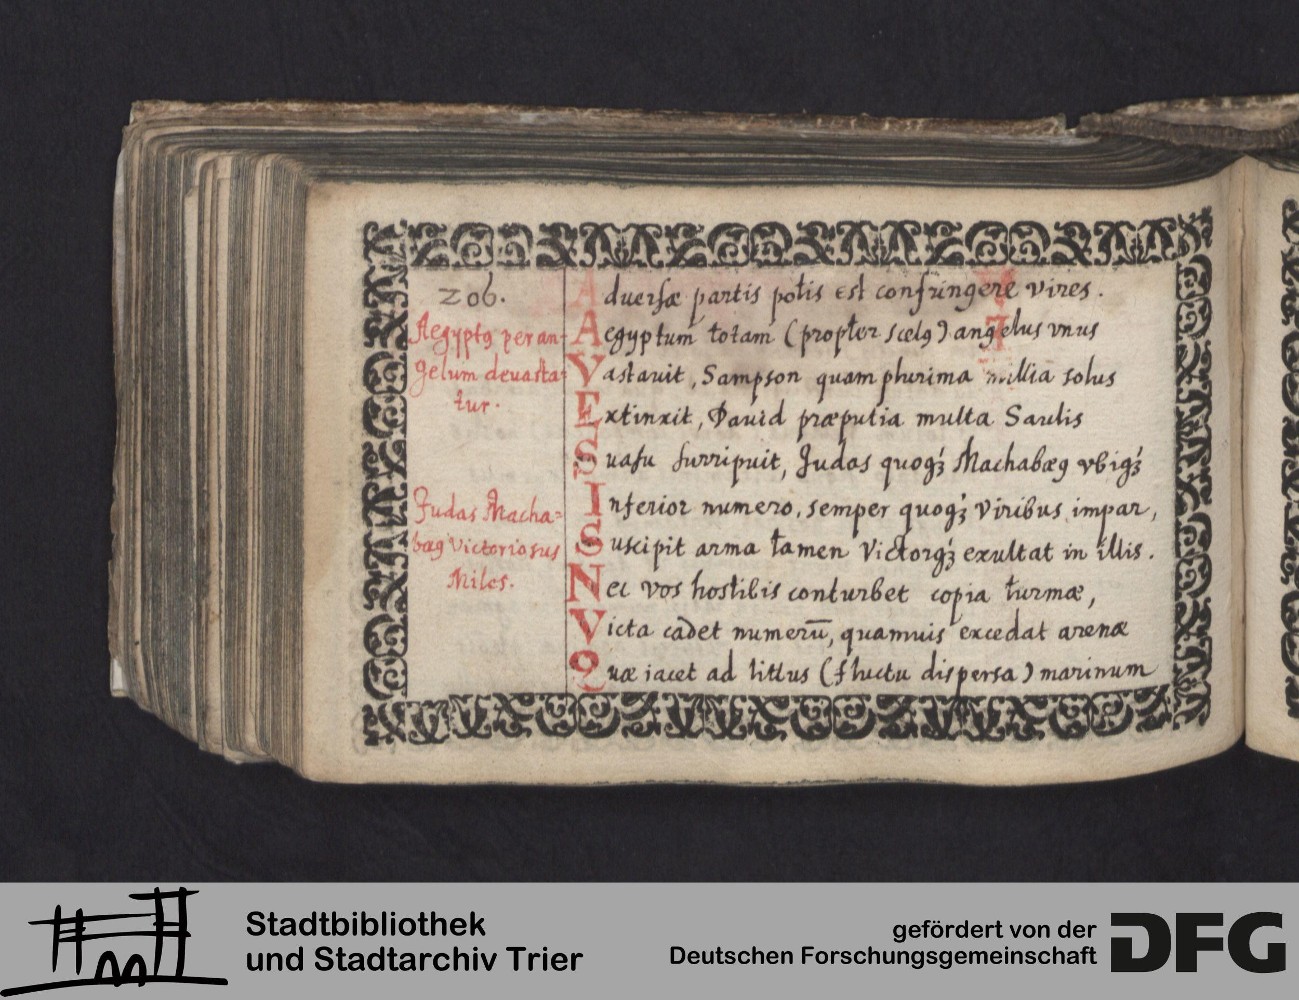 206.
Aegyptꝰ per an-
gelum deuasta-
tur.
Judas Macha=
bæꝰ Victoriosus
Miles.
Aduersæ partis potis est confringere vires.
Aegyptum totam (propter scelꝰ) angelus vnus
Vastauit, Sampson quam plurima millia solus
Extinxit, Dauid præputia multa Saulis
Suasu surripuit, Judas quoqꝫ Machabæꝰ vbiqꝫ
Inferior numero, semper quoqꝫ viribus impar,
Suscipit arma tamen Victorqꝫ exultat in illis.
Nec vos hostibis conturbet copia turmæ,
Victa cadet numerū, quamuis excedat arenæ
Quæ iacet ad littus (fluctu dispersa) marinum
Stadtbibliothek
und Stadtarchiv Trier
gefördert von der
Deutschen Forschungsgemeinschaft
DFG